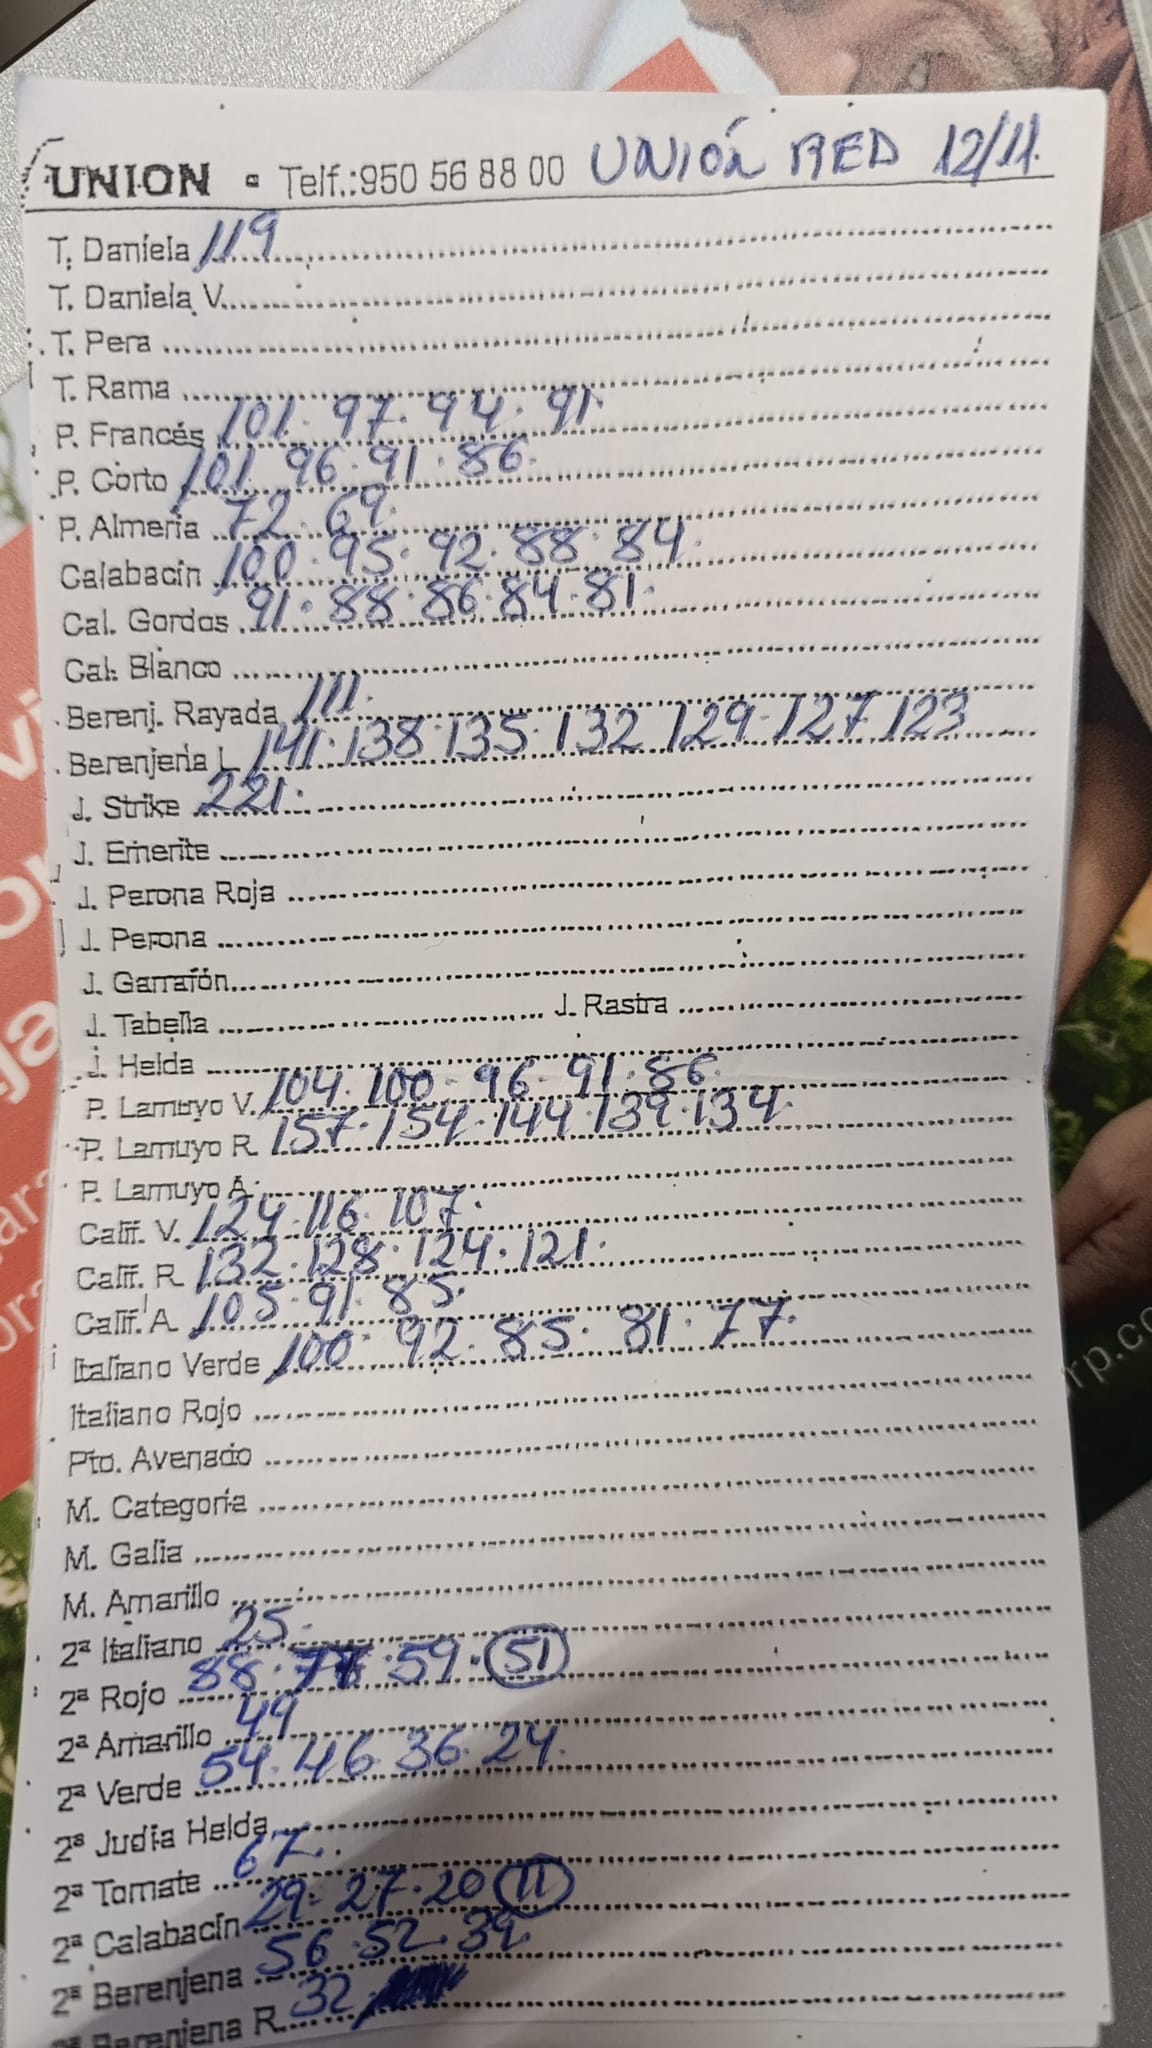 UNION • Telf.:950 56 88 00 UNIÓN RED 12/11.
T. Daniela 119
T. Daniela V.
T. Pera
T. Rama
P. Francés 101. 97. 94. 91.
P. Corto 101. 96. 91. 86.
P. Almeria 72. 69.
Calabacín 100. 95. 92. 88. 84.
Cal. Gordos 91. 88. 86. 84. 81.
Cal. Blanco
Berenj. Rayada 111.
Berenjena L 141. 138. 135. 132 129. 127. 123
J. Strike 221.
J. Emerite
J. Perona Roja
J. Perona
J. Garrafón
J. Tabella J. Rastra
J. Helda
P. Lamuyo V. 104. 100. 96. 91. 86.
P. Lamuyo R. 157. 154. 144. 139. 134.
P. Lamuyo A.
Calif. V. 124. 116. 107.
Calif. R 132. 128. 124. 121.
Calif. A 105. 91. 85.
Italiano Verde 100. 92. 85. 81. 77.
Italiano Rojo
Pto. Avenado
M. Categoría
M. Galia
M. Amarillo
2ª Italiano 25.
2ª Rojo 88. 59. 51
2ª Amarillo 49
2ª Verde 54. 46. 36. 24.
2ª Judía Helda
2ª Tomate 67.
2ª Calabacín 29. 27. 20 11
2ª Berenjena 56. 52. 39.
2ª Berenjena R. 32